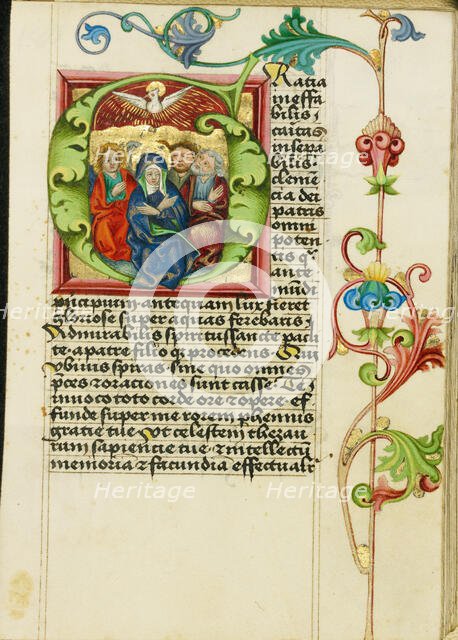 GRatia
ineffa
bilis
caitas
insepa
rabilis
clemē
cia dei
patris
omni
poten
tis q'
ante
mūdi
pricipium. antequam lux fieret
gloriose super aquas ferebaris
Admirabilis spiritus
te a patre filio q; procedens
sine quo omnes
p̄ces & orationes sunt casse. Te
inuoco toto corde ore & opere ef
funde super me rorem p̄hennis
gratie tue. Vt celestem thezau
rum sapiencie tue. & intellectū
memoria & facundia effectualr
Heritage
Heritage
Heritage
Heritage
Heritage
Heritage